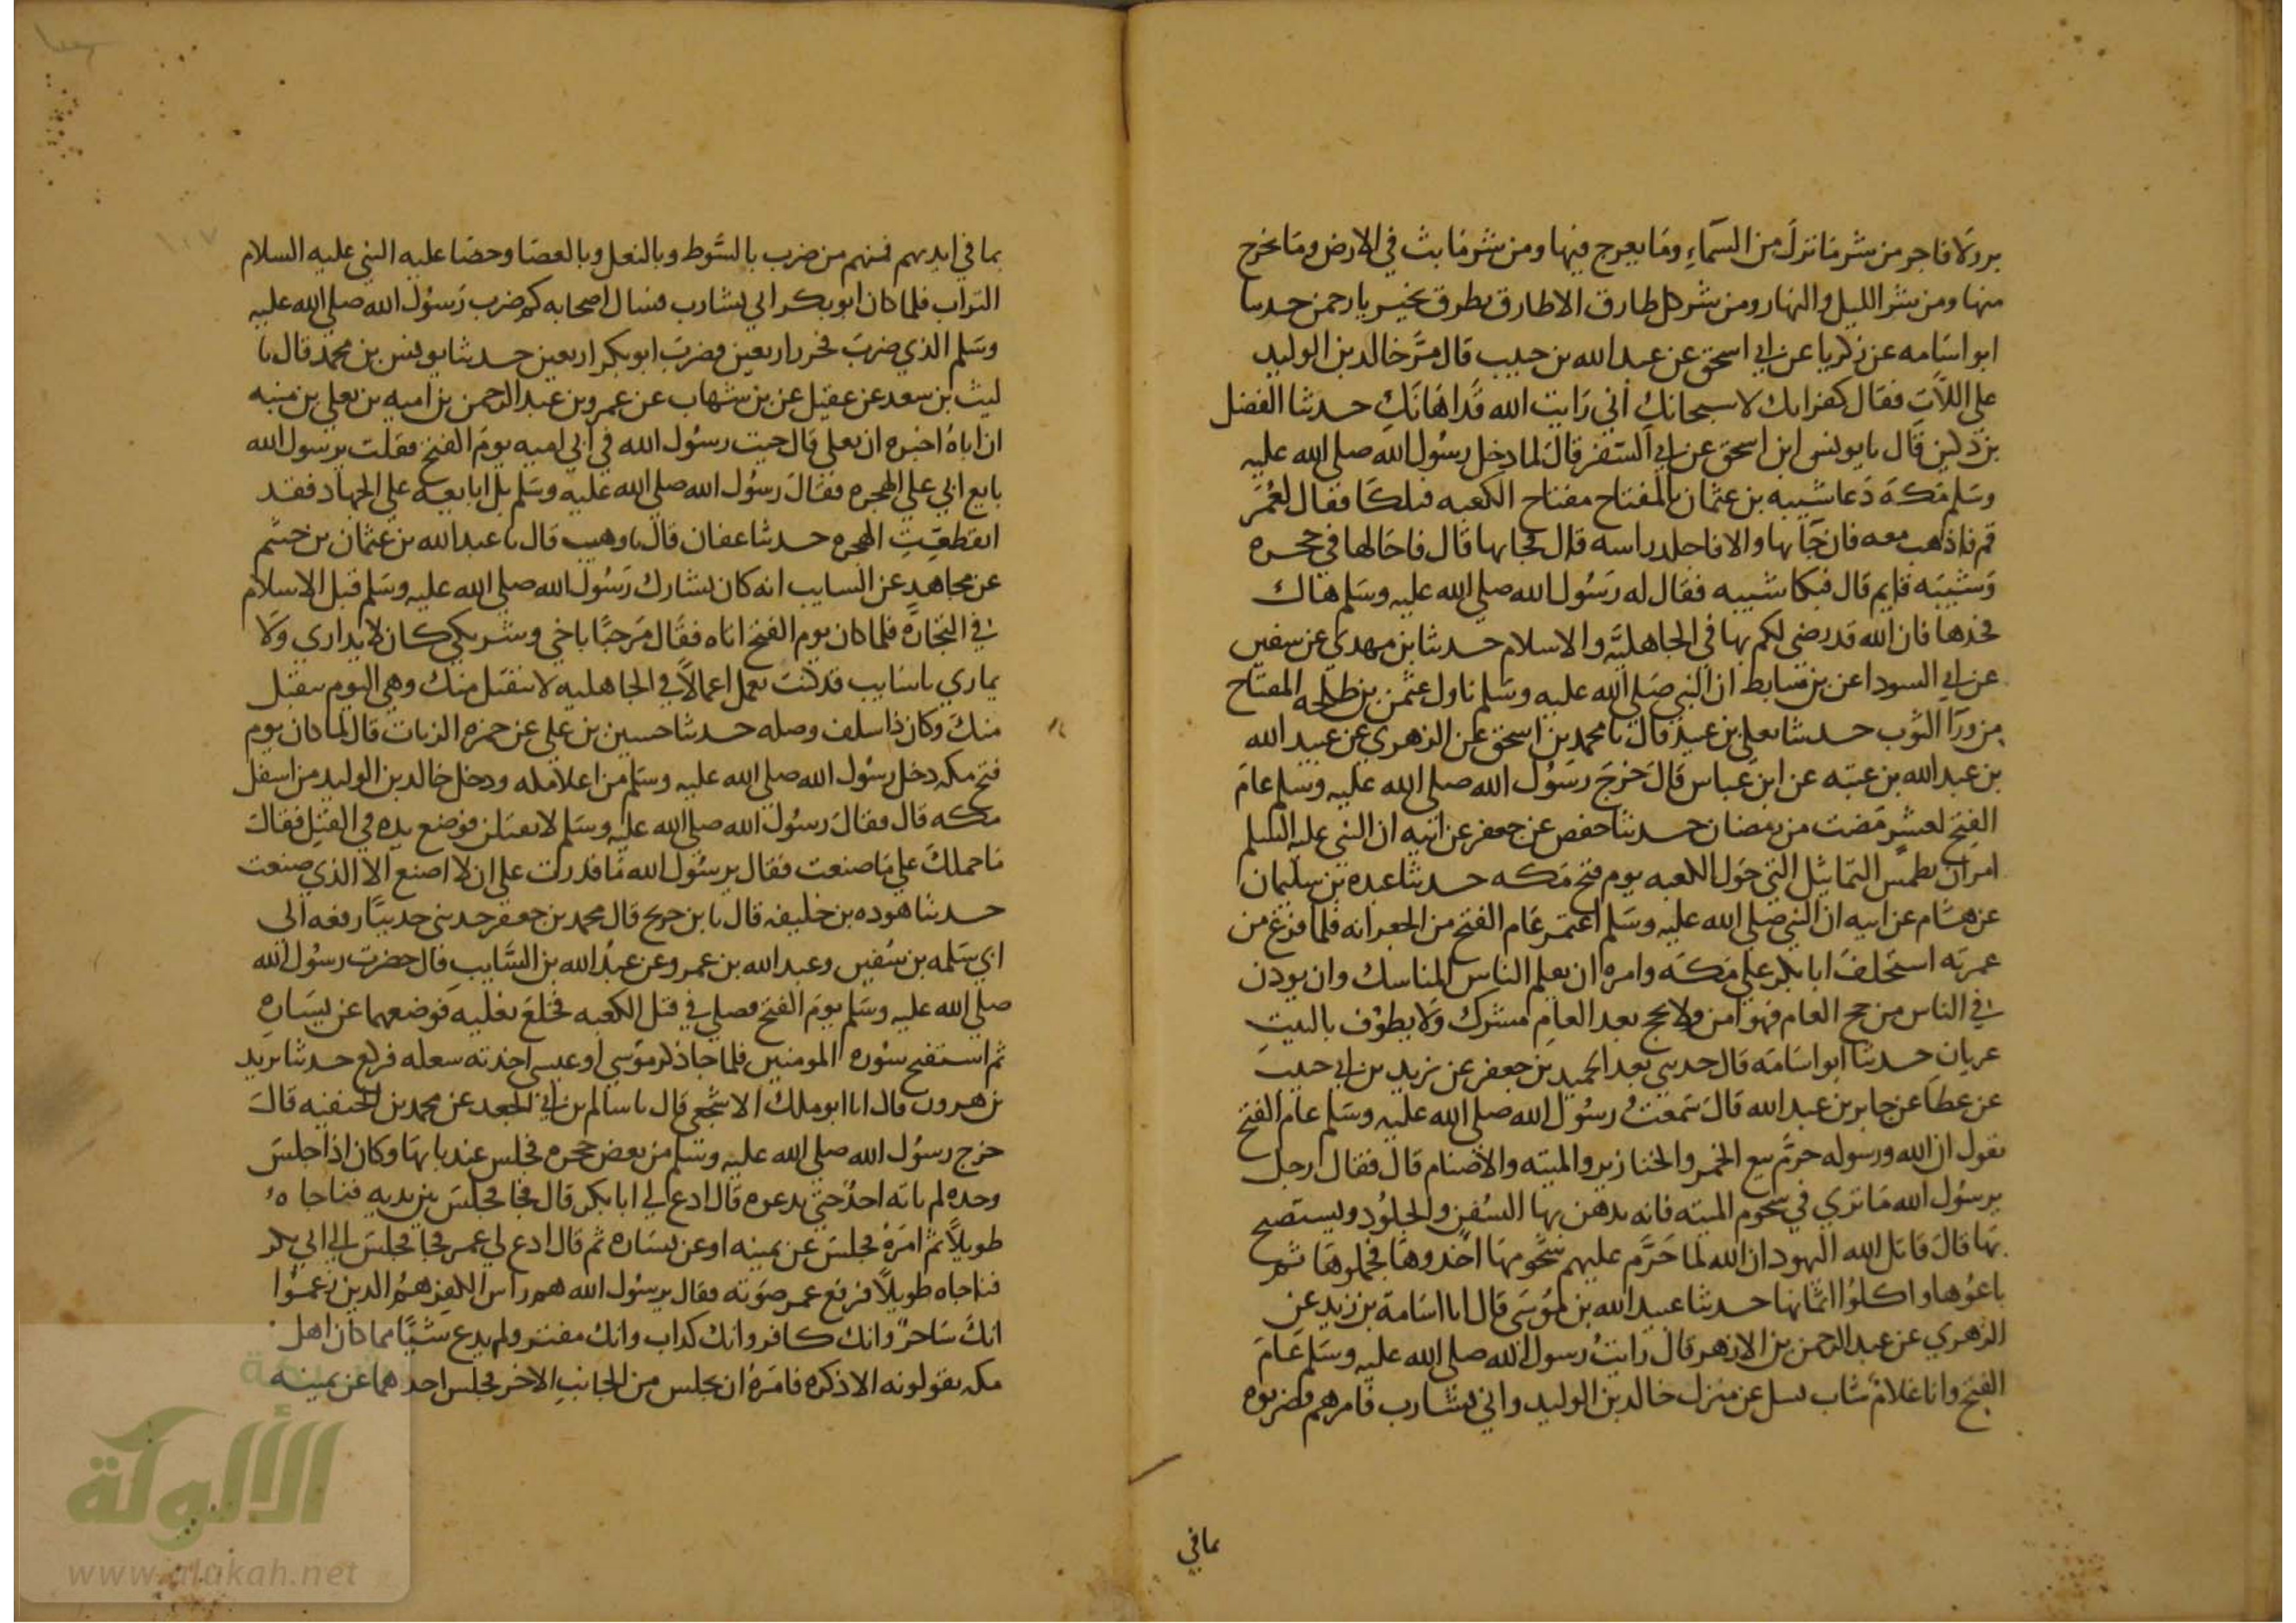 بر ولا فاجر من شر ما نزل من السماء وما يعرج فيها ومن شر ما بث في الارض وما يخرج
منها ومن شر الليل والنهار ومن شر كل طارق الا طارق يطرق بخير يا رحمن حدثنا
ابو اسامه عن زكريا عن ابي اسحق عن عبد الله بن حبيب قال مر خالد بن الوليد
على اللات فقال كفرانك لا سبحانك اني رايت الله قد اهانك حدثنا الفضل
بن دكين قال نا يونس ابن اسحق عن ابي السفر قال لما دخل رسول الله صلى الله عليه
وسلم مكة دعا شيبه بن عثمان بالمفتاح مفتاح الكعبه فتلكا فقال لعمر
قم فاذهب معه فان جا بها والا فاجلد راسه قال فجا بها قال فاجالها في حجره
وشيبه قايم قال فبكا شيبه فقال له رسول الله صلى الله عليه وسلم هاك
فخذها فان الله قد رضي لكم بها في الجاهلية والاسلام حدثنا بن مهدي عن سفين
عن ابي السودا عن بن سابط ان النبي صلى الله عليه وسلم ناول عثمن بن طلحه المفتاح
من ورا الثوب حدثنا يعلى بن عبيد قال نا محمد بن اسحق عن الزهري عن عبيد الله
بن عبد الله بن عتبه عن ابن عباس قال خرج رسول الله صلى الله عليه وسلم عام
الفتح لعشر مضت من رمضان حدثنا حفص عن جعفر عن ابيه ان النبي عليه السلم
امر ان يطمس التماثيل التي حول الكعبه يوم فتح مكه حدثنا عبده بن سليمان
عن هشام عن ابيه ان النبي صلى الله عليه وسلم اعتمر عام الفتح من الجعرانه فلما فرغ من
عمرته استخلف ابا بكر على مكه وامره ان يعلم الناس المناسك وان يوذن
في الناس من حج العام فهو امن ولا يحج بعد العام مشرك ولا يطوف بالبيت
عريان حدثنا ابو اسامه قال حدثني عبد الحميد بن جعفر عن يزيد بن ابي حبيب
عن عطا عن جابر بن عبد الله قال سمعت رسول الله صلى الله عليه وسلم عام الفتح
يقول ان الله ورسوله حرم بيع الخمر والخنازير والميته والاصنام قال فقال رجل
يرسول الله ما ترى في شحوم الميته فانه يدهن بها السفن والجلود ويستصبح
بها قال قاتل الله اليهود ان الله لما حرم عليهم شحومها اخذوها فجملوها ثم
باعوها واكلوا اثمانها حدثنا عبيد الله بن موسى قال انا اسامة بن زيد عن
الزهري عن عبد الرحمن بن الازهر قال رايت رسول الله صلى الله عليه وسلم عام
الفتح وانا غلام شاب يسل عن منزل خالد بن الوليد واتي بشارب فامرهم فضربوه
بما في
بما في ايديهم فمنهم من ضرب بالسوط وبالنعل وبالعصا وحصا عليه النبي عليه السلام
التراب فلما كان ابو بكر اتي بشارب فسال اصحابه كم ضرب رسول الله صلى الله عليه
وسلم الذي ضرب فحزر اربعين فضرب ابو بكر اربعين حدثنا يونس بن محمد قال نا
ليث بن سعد عن عقيل عن بن شهاب عن عمرو بن عبد الرحمن بن اميه بن يعلى بن منيه
ان اباه اخبره ان يعلى قال جيت رسول الله في ابي اميه يوم الفتح فقلت يرسول الله
بايع ابي على الهجره فقال رسول الله صلى الله عليه وسلم بل ابايعه على الجهاد فقد
انقطعت الهجره حدثنا عفان قال نا وهيب قال نا عبد الله بن عثمان بن خثيم
عن مجاهد عن السايب انه كان يشارك رسول الله صلى الله عليه وسلم قبل الاسلام
في التجارة فلما كان يوم الفتح اتاه فقال مرحبا باخي وشريكي كان لا يداري ولا
يماري يا سايب قد كنت تعمل اعمالا في الجاهليه لا تتقبل منك وهي اليوم تتقبل
منك وكان ذا سلف وصله حدثنا حسين بن علي عن حمزه الزيات قال لما كان يوم
فتح مكه دخل رسول الله صلى الله عليه وسلم من اعلا مكه ودخل خالد بن الوليد من اسفل
مكه قال فقال رسول الله صلى الله عليه وسلم لا تقتلن فوضع يده في القتل فقال
ما حملك على ما صنعت فقال يرسول الله ما قدرت على ان لا اصنع الا الذي صنعت
حدثنا هوذه بن خليفه قال نا بن جريج قال محمد بن جعفر حدثني حديثا رفعه الى
ابي سلمه بن سفين وعبد الله بن عمرو عن عبد الله بن السايب قال حضرت رسول الله
صلى الله عليه وسلم يوم الفتح فصلى في قبل الكعبه فخلع نعليه فوضعهما عن يساره
ثم استفتح سوره المومنين فلما جا ذكر موسى او عيسى اخذته سعله فركع حدثنا يزيد
بن هرون قال انا ابو ملك الاشجعي قال نا سالم بن ابي الجعد عن محمد بن الحنفيه قال
خرج رسول الله صلى الله عليه وسلم من بعض حجره فجلس عند بابها وكان اذا جلس
وحده لم ياته احد حتى يدعوه قال ادع لي ابا بكر قال فجا فجلس بين يديه فناجاه
طويلا ثم امره فجلس عن يمينه او عن يساره ثم قال ادع لي عمر فجا فجلس الى ابي بكر
فناجاه طويلا فرفع عمر صوته فقال يرسول الله هم راس الكفر هم الذين زعموا
انك ساحر وانك كافر وانك كذاب وانك مفتر ولم يدع شيا مما كان اهل
مكه يقولونه الا ذكره فامره ان يجلس من الجانب الاخر فجلس احدهما عن يمينه
الألوكة
www.alukah.net